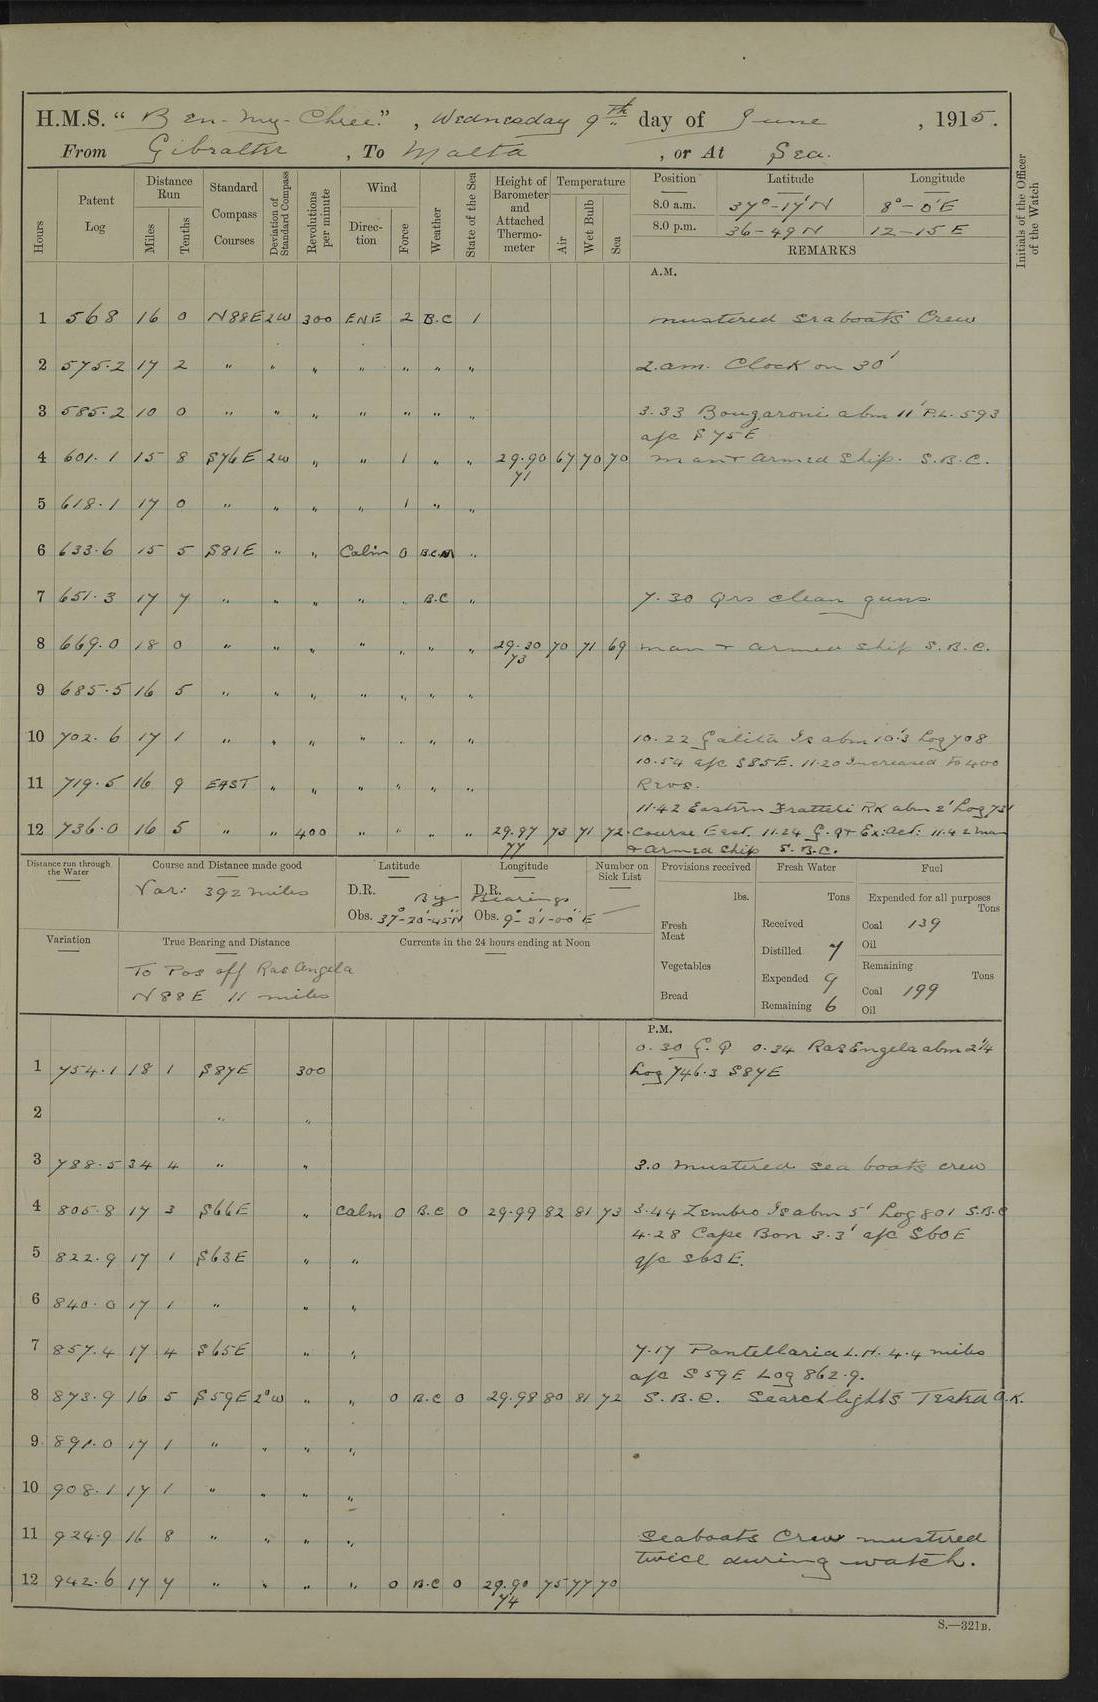 H.M.S. " Ben-my-Chree." , Wednesday 9th day of June , 1915.
From Gibralter , To Malta , or At Sea.
Hours
Patent Log
Distance Run
Miles
Tenths
Standard Compass Courses
Deviation of Standard Compass
Revolutions per minute
Wind
Direction
Force
Weather
State of the Sea
Height of Barometer and Attached Thermometer
Temperature
Air
Wet Bulb
Sea
Position Latitude Longitude
8.0 a.m. 37°-17'N 8°-0'E
8.0 p.m. 36-49N 12-15E
REMARKS
Initials of the Officer of the Watch
A.M.
1 568 16 0 N88E 2W 300 ENE 2 B.C 1 mustered seaboats Crew
2 575.2 17 2 " " " " " " " 2.am. Clock on 30'
3 585.2 10 0 " " " " " " " 3.33 Bougaroni abm 11' P.L. 593
a/c S75E
4 601.1 15 8 S76E 2W " " 1 " " 29.90 67 70 70 man & armed Ship. S.B.C.
71
5 618.1 17 0 " " " " 1 " "
6 633.6 15 5 S81E " " Calm 0 B.C.M "
7 651.3 17 7 " " " " " B.C " 7.30 Qrs clean guns
8 669.0 18 0 " " " " " " " 29.30 70 71 69 man & armed ship S.B.C.
73
9 685.5 16 5 " " " " " " "
10 702.6 17 1 " " " " " " " 10.22 Galita Is abm 10'.3 Log 708
10.54 a/c S85E. 11.20 Increased to 400
11 719.5 16 9 EAST " " " " " " Revs.
11.42 Eastern Fratteli Rk abm 2' Log 731
12 736.0 16 5 " " 400 " " " " 29.97 73 71 72 Course East. 11.24 G.Qt Ex: act: 11.42 man
77 & armed ship S.B.C.
Distance run through the Water
Course and Distance made good
Var: 392 miles
Latitude
D.R. By
Obs. 37°-20'-45"N
Longitude
D.R. Bearings
Obs. 9°-31'-00"E
Number on Sick List
—
Provisions received
lbs.
Fresh Meat
Vegetables
Bread
Fresh Water
Tons
Received
Distilled 7
Expended 9
Remaining 6
Fuel
Expended for all purposes
Tons
Coal 139
Oil
Remaining
Tons
Coal 199
Oil
Variation
True Bearing and Distance
To Pos off Ras Angela
N88E 11 miles
Currents in the 24 hours ending at Noon
P.M.
0.30 G.Q 0.34 Ras Engela abm 2'¼
1 754.1 18 1 S87E 300 Log 746.3 S87E
2 " "
3 788.5 34 4 " " 3.0 mustered sea boats crew
4 805.8 17 3 S66E " Calm 0 B.C 0 29.99 82 81 73 3.44 Zembro Is abm 5' Log 801 S.B.C
4.28 Cape Bon 3.3' a/c S60E
5 822.9 17 1 S63E " " a/c S63E.
6 840.0 17 1 " " "
7 857.4 17 4 S65E " " 7.17 Pantellaria L.H. 4.4 miles
a/c S59E Log 862.9.
8 873.9 16 5 S59E 2°W " " 0 B.C 0 29.98 80 81 72 S.B.C. Searchlights Tested O.K.
9 891.0 17 1 " " " "
10 908.1 17 1 " " " "
11 924.9 16 8 " " " " Seaboats Crew mustered
twice during watch.
12 942.6 17 7 " " " " 0 B.C 0 29.90 75 77 70
74
S.—321B.